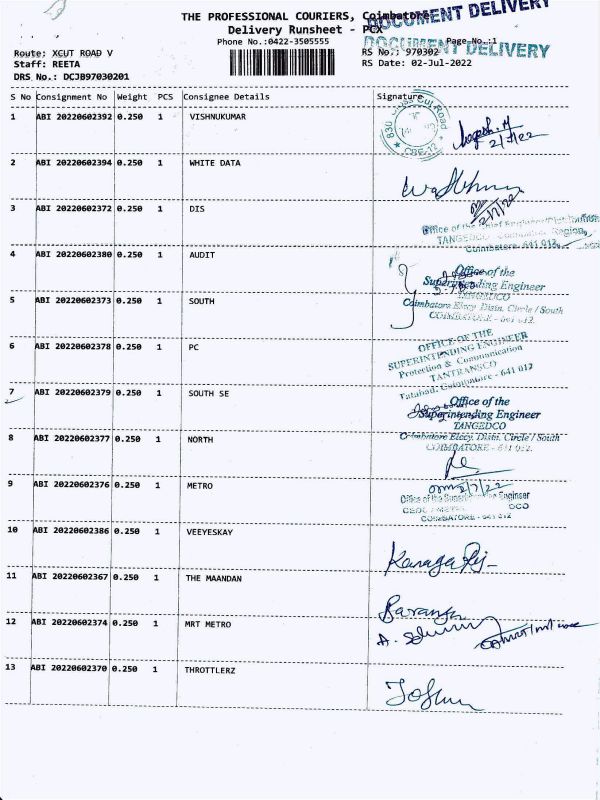 DOCUMENT DELIVERY
THE PROFESSIONAL COURIERS, Coimbatore
Delivery Runsheet - PCX
DOCUMENT DELIVERY
Phone No.:0422-3505555
Page No.:1
Route: XCUT ROAD V
RS No.: 970302
Staff: REETA
RS Date: 02-Jul-2022
DRS No.: DCJB97030201
S No Consignment No Weight PCS Consignee Details Signature
1 ABI 20220602392 0.250 1 VISHNUKUMAR
830 Cross Cut Road CBE-12
2/7/22
2 ABI 20220602394 0.250 1 WHITE DATA
3 ABI 20220602372 0.250 1 DIS
2/7/22
Office of the Chief Engineer/Distribution
TANGEDCO Coimbatore Region,
Coimbatore - 641 012.
4 ABI 20220602380 0.250 1 AUDIT
Office of the
Superintending Engineer
TANGEDCO
5 ABI 20220602373 0.250 1 SOUTH
Coimbatore Elecy. Distn. Circle / South
COIMBATORE - 641 012.
6 ABI 20220602378 0.250 1 PC
OFFICE OF THE
SUPERINTENDING ENGINEER
Protection & Communication
TANTRANSCO
Tatabad, Coimbatore - 641 012
7 ABI 20220602379 0.250 1 SOUTH SE
Office of the
Superintending Engineer
TANGEDCO
8 ABI 20220602377 0.250 1 NORTH
Coimbatore Elecy. Distn. Circle / South
COIMBATORE - 641 012.
9 ABI 20220602376 0.250 1 METRO
2/7/22
Office of the Superintending Engineer
COIMBATORE - 641 012
10 ABI 20220602386 0.250 1 VEEYESKAY
11 ABI 20220602367 0.250 1 THE MAANDAN
12 ABI 20220602374 0.250 1 MRT METRO
13 ABI 20220602370 0.250 1 THROTTLERZ